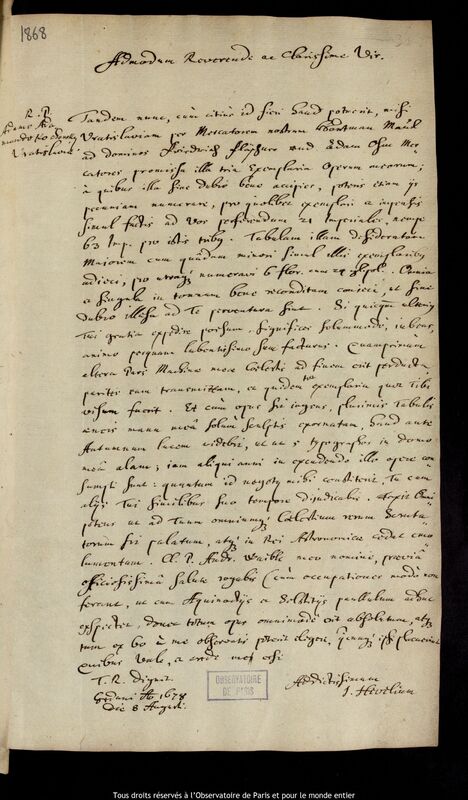 1868
Admodum Reverende ac Clarissime Vir.
R. P.
Adamo Ada
mando
Vratislaviæ
Tandem nunc, cum citius id fieri haud potuerit, misi
Vratislaviam per Mercatorem nostrum
ad dominos Friedrich und Adam Mer-
catores, promissa illa tria Exemplaria Operum meorum;
a quibus illa sine dubio bene accipies, poteris etiam ipsis
pecuniam numerare, pro quolibet exemplari ac impensis
simul factis ad Vos deferendum 21 Imperiales, nempe
63 Imp. pro istis tribus. Tabulam illam desideratam
Majorem cum quadam minori simul illis exemplaribus
adjeci, pro numeravi 6 flor. cum 24 . Omnia
a Singula in tonnam bene reconditam conjeci, ut sine
dubio illæsa ad Te perventura sint. Si quicquam alterius
Tui gratia expedire possum, significes solummodo, lubens,
animo perquam lubentissimo sum facturus. Quamprimum
altera Pars Machinæ meæ Cœlestis ad finem erit perducta
pariter eam transmittam, et quidem tot exemplaria quot Tibi
visum fuerit. Et cum opus sit ingens, plurimis Tabulis
æneis manu mea solum sculptis exornatum, haud ante
Autumnum lucem videbit, ut ut 5 typographos in domo
mea alam; jam aliqui anni in excudendo illo opere con-
sumpti sunt: quantum id negotij mihi constiterit, Tu cum
alijs Tui similibus suo tempore dijudicabis. Deus
potens ut ad Tuum omniumque Cœlestium rerum Scruta-
torum sit palatum, atque in Rei Astronomicæ cedat emo-
lumentum. Cl. P. Andr. meo nomine, præviâ
officiosissimâ salute rogabis (cum occupationes modo non
ferant, ut cum Æquinoctijs ac Solstitijs paullulum adhuc
exspectet, donec totum opus omnimode erit absolutum, atque
tum ex eo à me observatis poterit eligere, quæ ipsi placuerint
Quibus Vale, a
T. R. Dignit.
Gedani Ao 1678
die 8 Augusti.
Addictissimum
J. Hevelium
OBSERVATOIRE
DE PARIS
Tous droits réservés à l'Observatoire de Paris et pour le monde entier